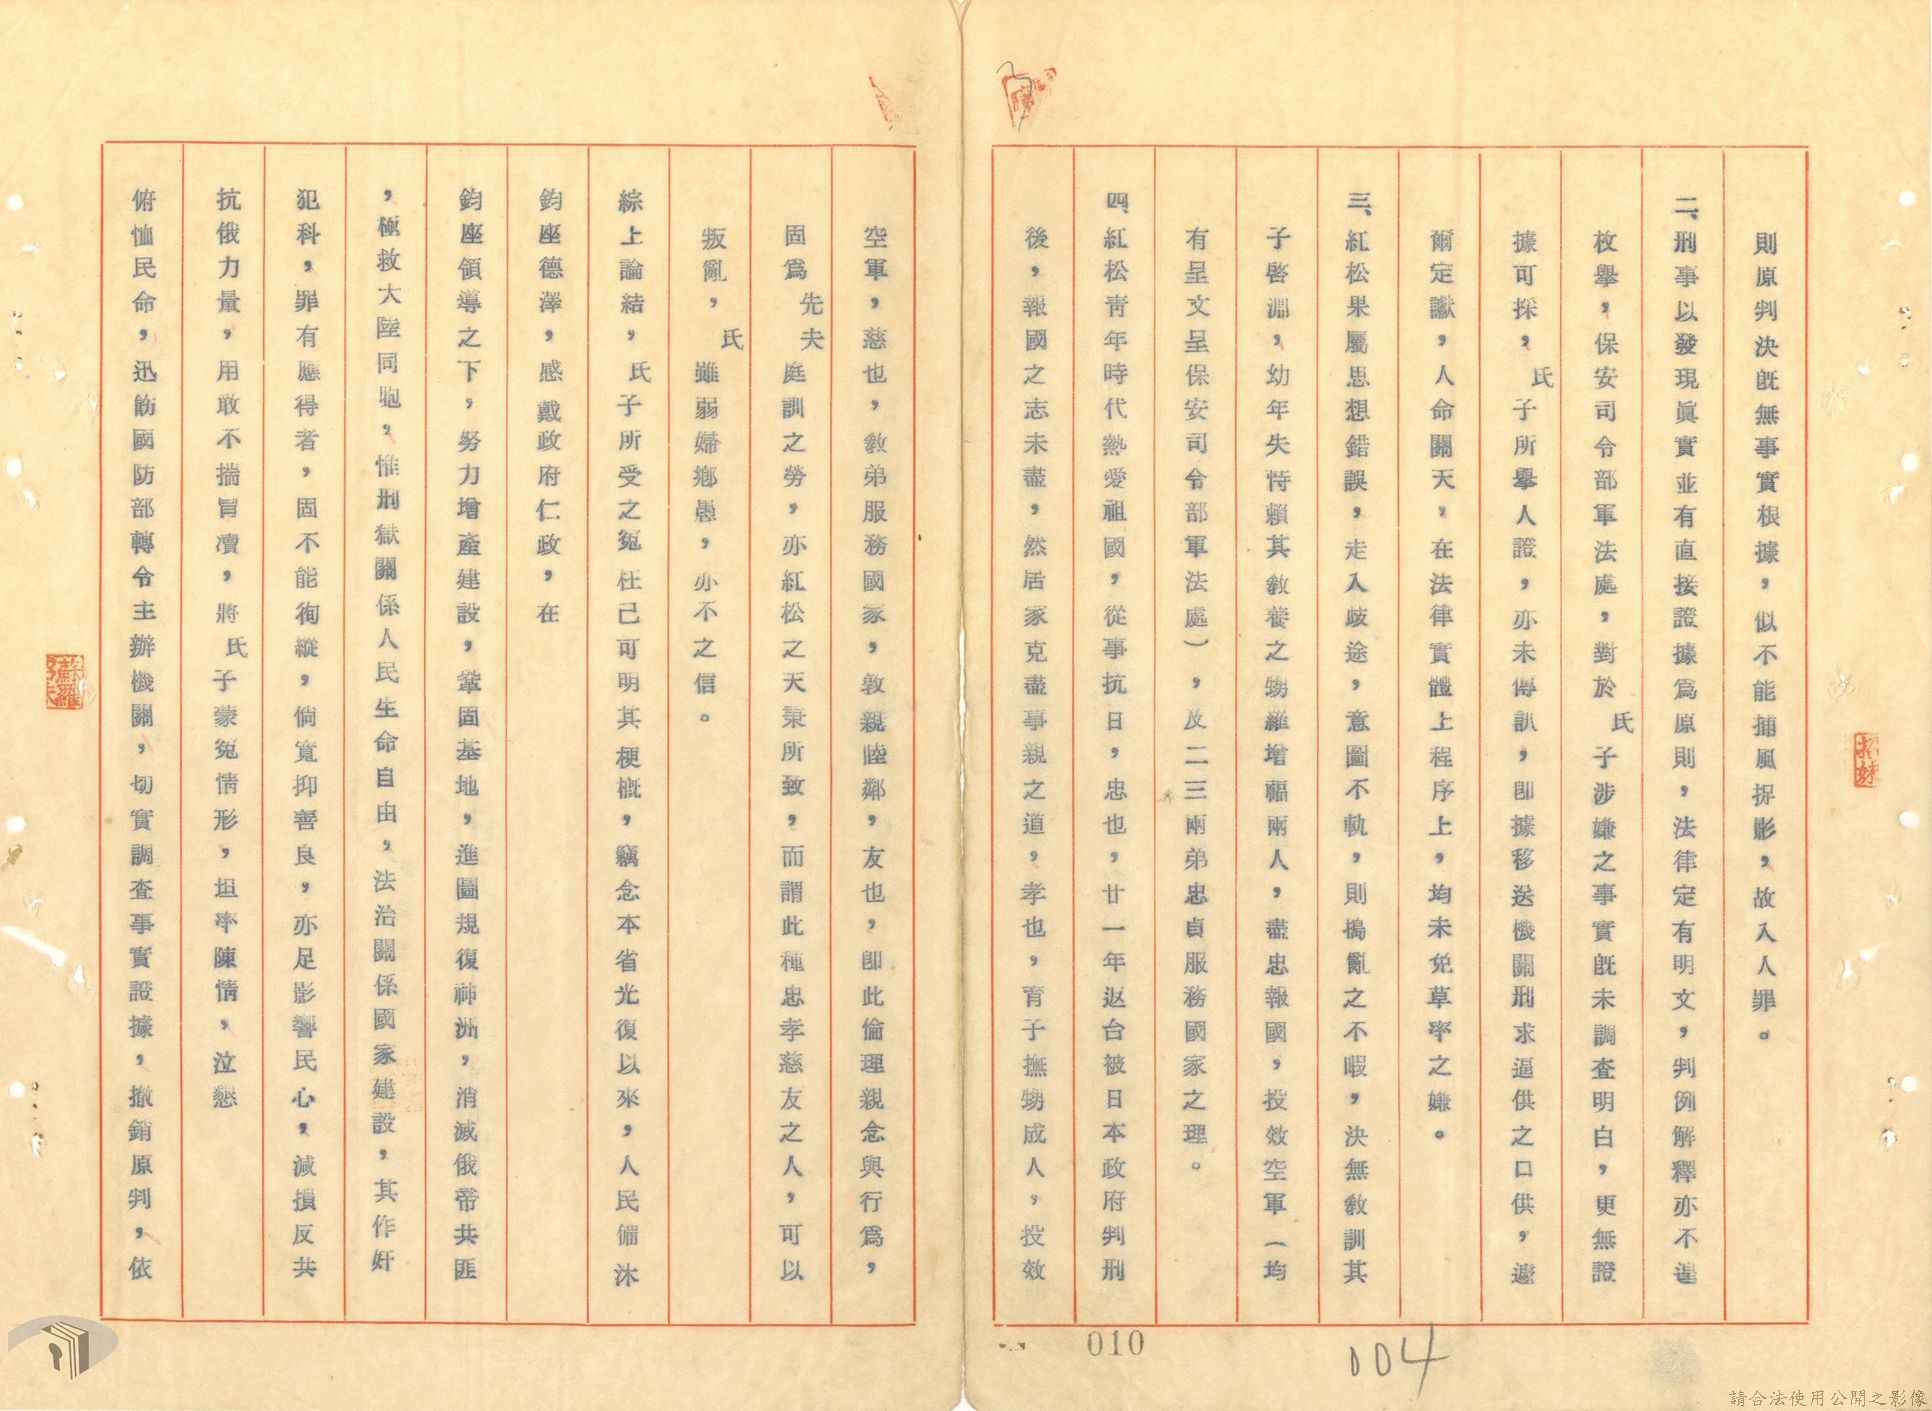 則原判決旣無事實根據，似不能捕風捉影，故入人罪。
二、刑事以發現眞實並有直接證據爲原則，法律定有明文，判例解釋亦不遑
枚舉，保安司令部軍法處，對於氏子涉嫌之事實旣未調查明白，更無證
據可採，氏子所舉人證，亦未傳訊，卽據移送機關刑求逼供之口供，遽
爾定讞，人命關天，在法律實體上程序上，均未免草率之嫌。
三、紅松果屬思想錯誤，走入歧途，意圖不軌，則搗亂之不暇，決無敎訓其
子啓淵，幼年失恃賴其敎養之甥羅增福兩人，盡忠報國，投效空軍（均
有呈文呈保安司令部軍法處），及二三兩弟忠貞服務國家之理。
四、紅松靑年時代熱愛祖國，從事抗日，忠也，廿一年返台被日本政府判刑
後，報國之志未盡，然居家克盡事親之道，孝也，育子撫甥成人，投效
空軍，慈也，敎弟服務國家，敦親睦鄰，友也，卽此倫理親念與行爲，
固爲先夫庭訓之勞，亦紅松之天秉所致，而謂此種忠孝慈友之人，可以
叛亂，氏雖弱婦鄕愚，亦不之信。
綜上論結，氏子所受之冤枉已可明其梗槪，竊念本省光復以來，人民備沐
鈞座德澤，感戴政府仁政，在
鈞座領導之下，努力增產建設，鞏固基地，進圖規復神洲，消滅俄帝共匪
，極救大陸同胞，惟刑獄關係人民生命自由，法治關係國家建設，其作奸
犯科，罪有應得者，固不能徇縱，倘寃抑善良，亦足影響民心，減損反共
抗俄力量，用敢不揣冒瀆，將氏子蒙冤情形，坦率陳情，泣懇
俯恤民命，迅飭國防部轉令主辦機關，切實調查事實證據，撤銷原判，依
蘇羅
招妹
010
004
請合法使用公開之影像